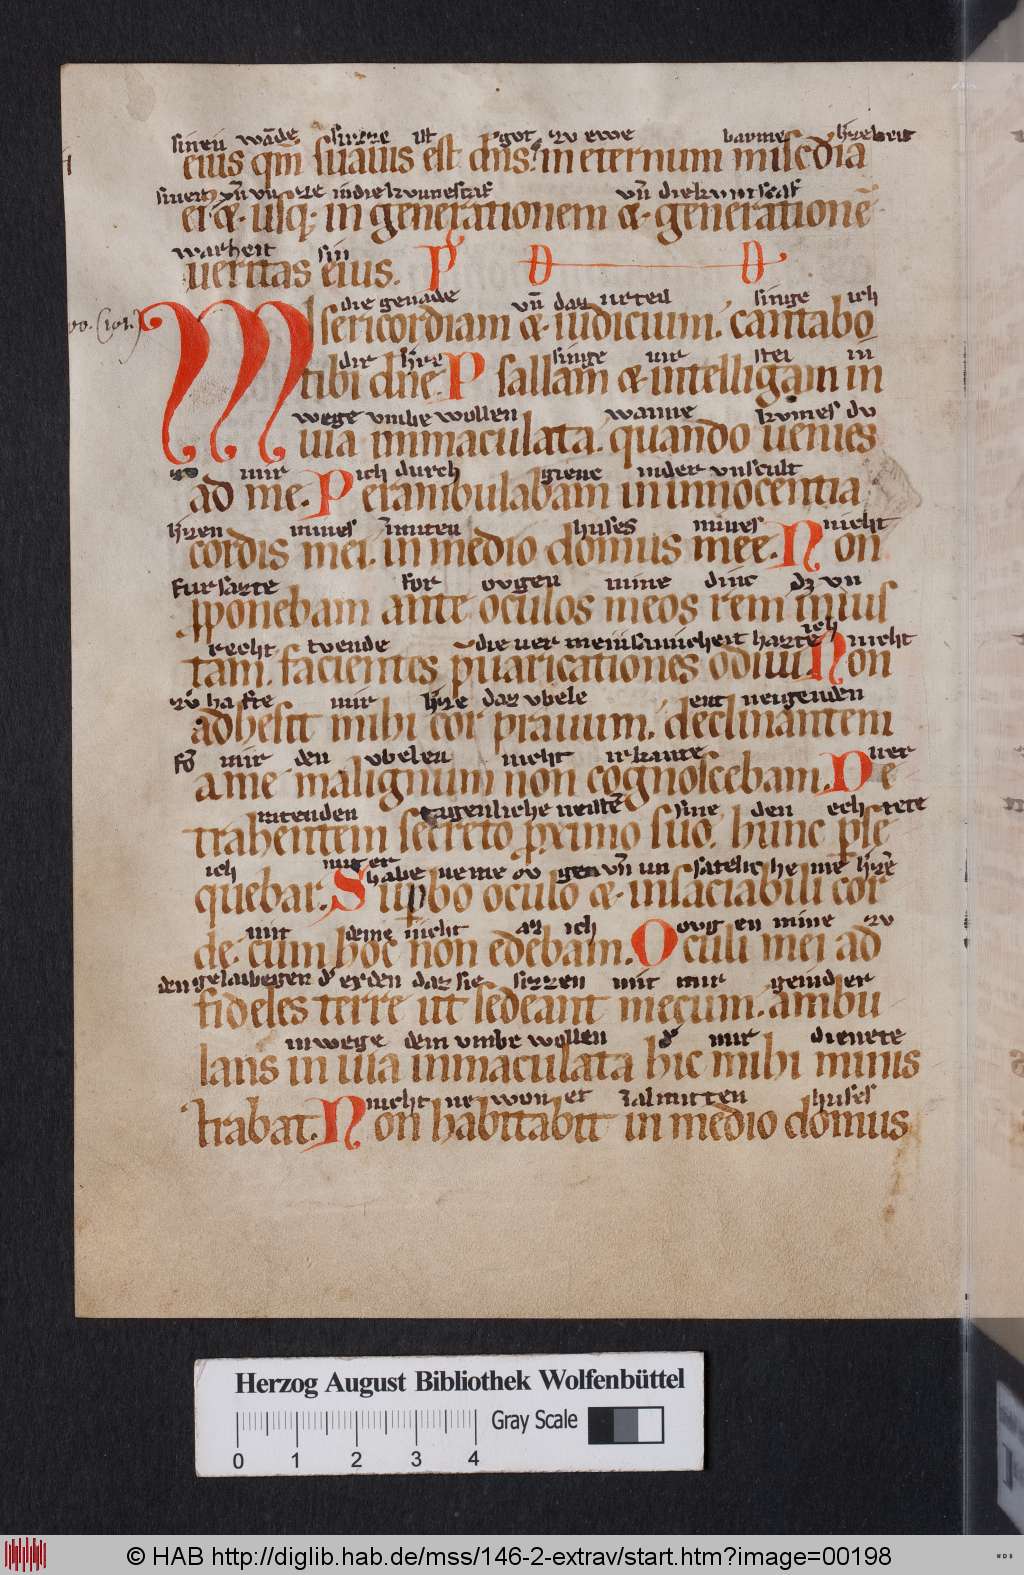 sinen wāde sůzze ist got zv ewe barmeh̄zekeit
eius qm̄ suauis est dn̄s. in eternum misc̄dia
eī &. usq. in generationem &. generationē
warheit sin
ueritas eius. P D D
die genade vn̄ daz urteil singe ich
Misericordiam &. iudicium. cantabo
dir h̄re singe mir stei in
tibi dn̄e. Psallam &. intelligam in
wege vmbe wollen wanne kvmes dv
uia immaculata. quando uenies
zv mir ich durch gienc inder vnscult
ad me. Perambulabam in innocentia
h̄zen mines īmiten huses mines nicht
cordis mei. in medio domus mee. Non
fursazte for ovgen mine dinc dz vn
pponebam ante oculos meos rem inius
recht tvende die ich nicht
tam. facientes p̄uaricationes odiui Non
zv̊ hafte mir h̄ze daz vbele ent neugenden
adhesit mihi cor prauum. declinantem
fō mir den vbelen nicht irkante
a me malignum non cognoscebam. De
sine den echtete
trahentem secreto pximo suo. hunc pse
ich mit er ovgen vn̄ un h̄ze
quebar. Supbo oculo &. insaciabili cor
mit deme nicht az ich ovgen mine zv
de. cum hoc non edebam. Oculi mei ad
den gelaubegen d' erden daz sie sizzen mit mir
fideles terre ut sedeant mecum. ambu
in wege dem vmbe wollen d' mir dienete
lans in uia inmaculata hic mihi minis
nicht ne wonet huses
trabat. Non habitabit in medio domus
Herzog August Bibliothek Wolfenbüttel
Gray Scale
0 1 2 3 4
© HAB http://diglib.hab.de/mss/146-2-extrav/start.htm?image=00198